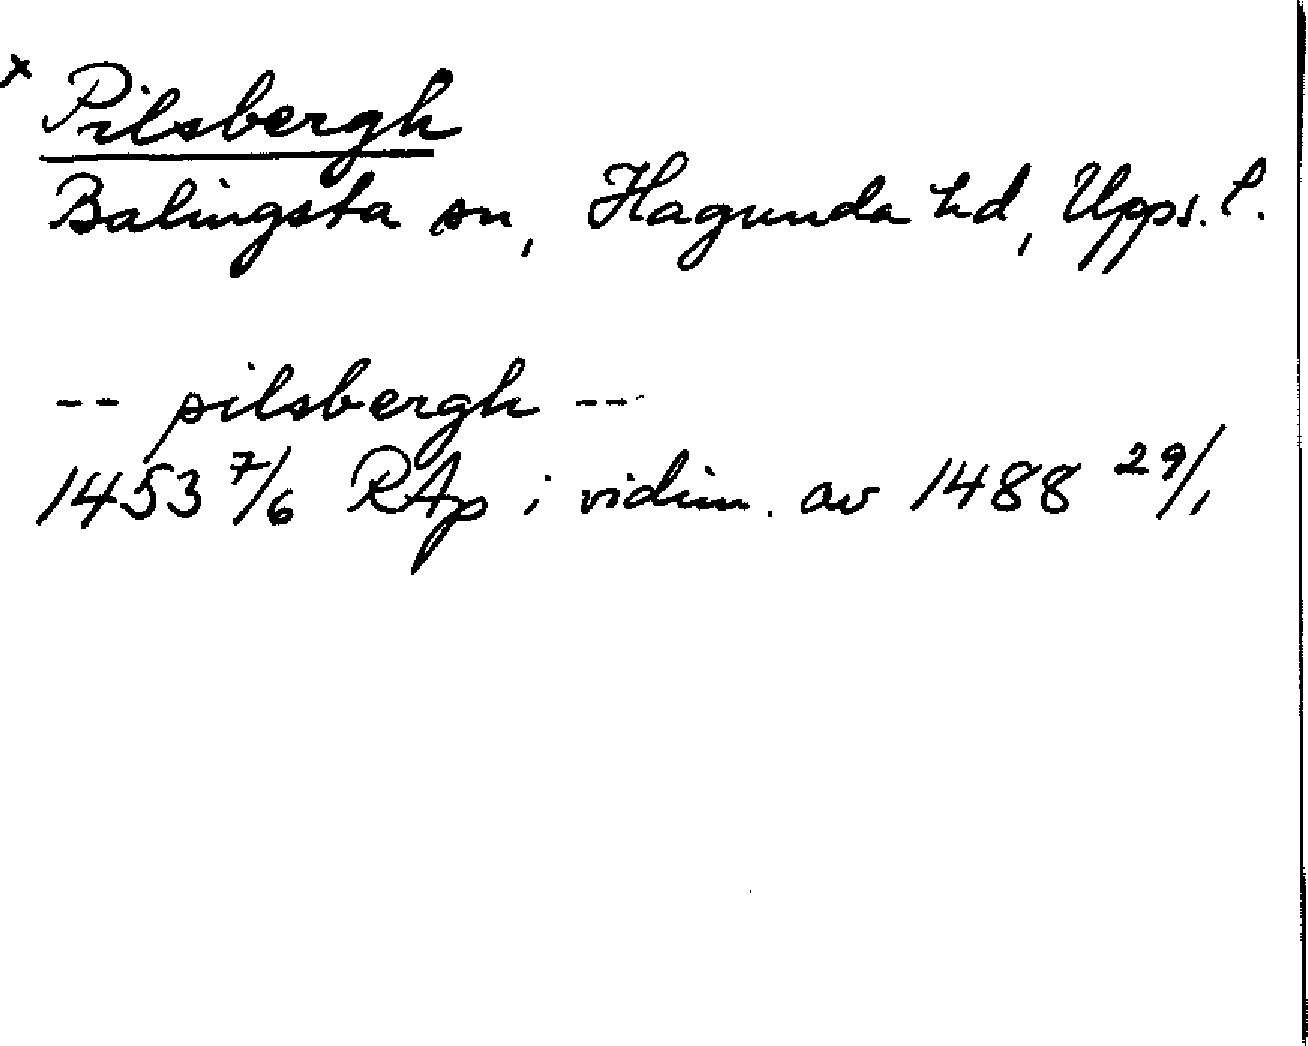 x Pilsbergh
Balingsta sn, Hagunda hd, Upps. l.
-- pilsbergh --
1453 7/6 RAp i vidim. av 1488 29/1